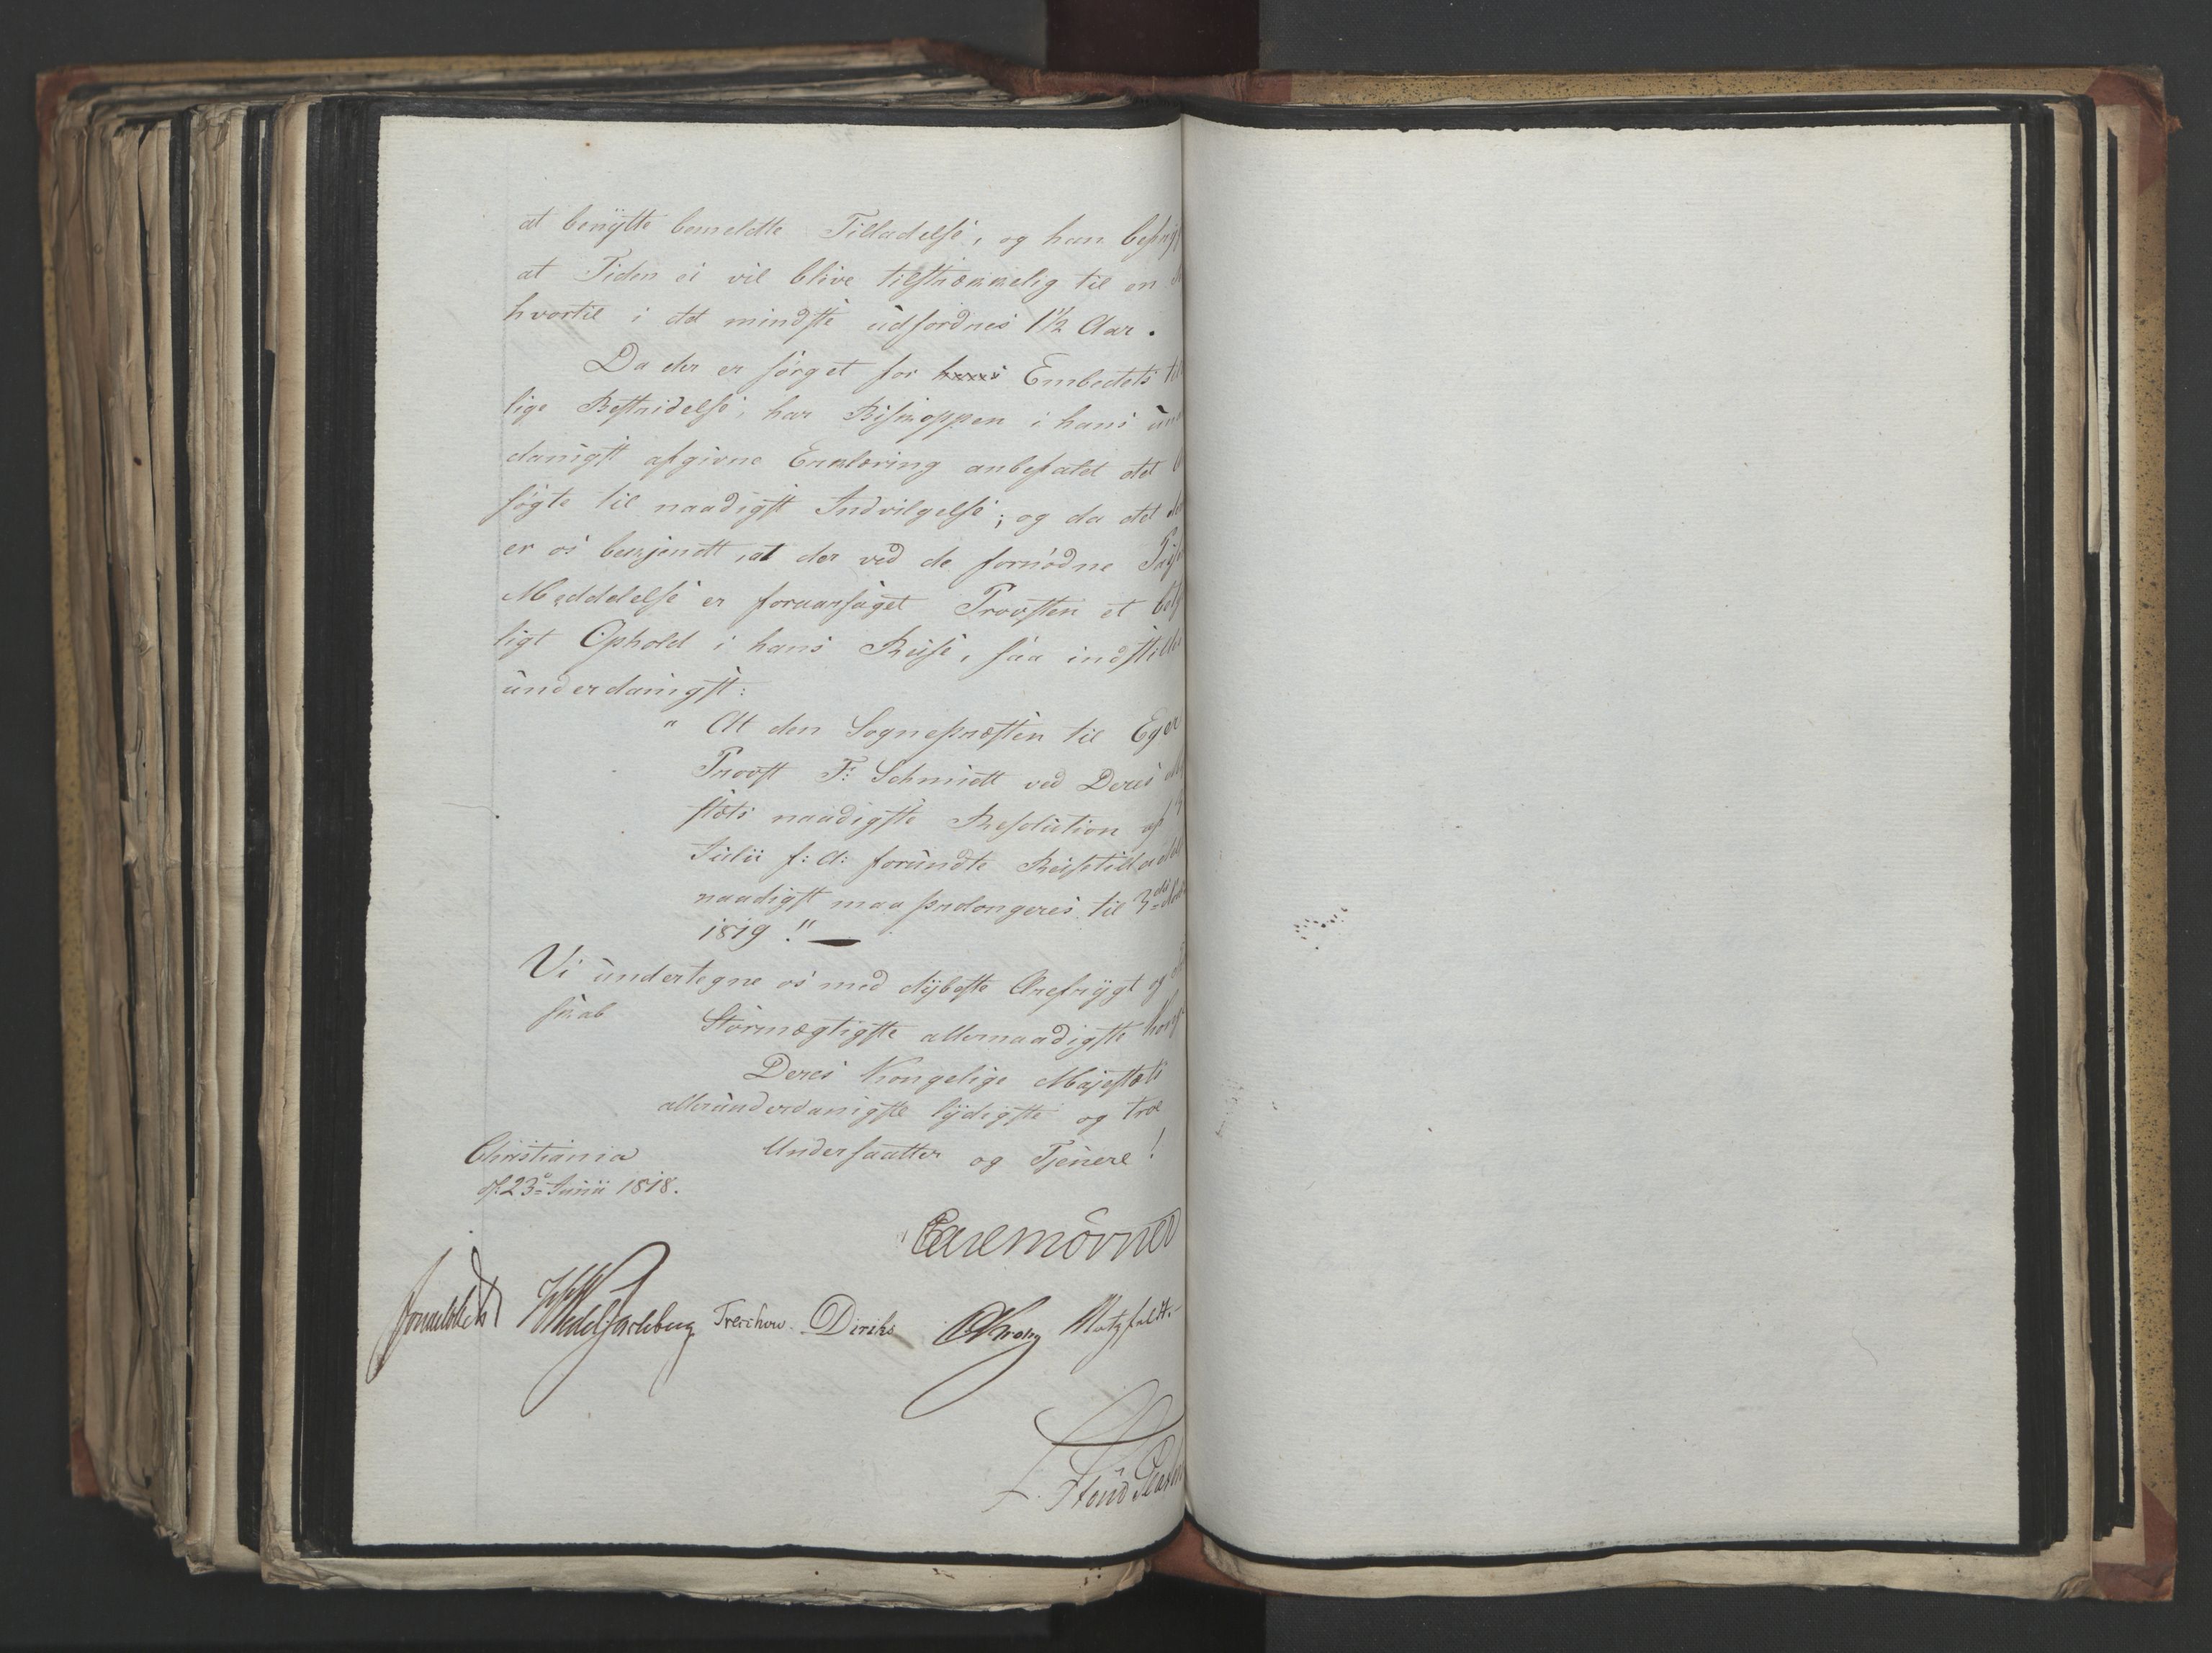 at benÿtte bemeldte Tilladelse, og han befrÿg
at Tiden ei vil blive tilstrækkelig til en
hvortil i det mindste udfordres 1½ Aar.
Da der er sørget for hans Embedets
lige Bestridelse, har Biskoppen i hans un
danigst afgivne Erklæring anbefalet det
søgte til naadigst Indvilgelse; og da det
er os bekjendt, at der ved de fornødne
Meddelelse er foraarsaget Provsten et
ligt Ophold i hans Reise, saa indstille
underdanigst:
" At den Sognepræsten til Eger
Provst F: Schmidt ved Deres
stæts naadigste Resolution af
Julii f: A: forundte Reisetillad
naadigst maa prolongeres til 3die
1819 !"
Vi undertegne os med dÿbeste Ærefrÿgt og
skab
Stormægtigste allernaadigste Kong
Deres Kongelige Majestæts
allerunderdanigste lÿdigste og troe
Undersaatter og Tjenere!
Christiania
d: 23de Junii 1818.
Carl Mörner
Sommerhielm Wedel Jarlsberg Treschow. Diriks CKrohg Motzfeldt.